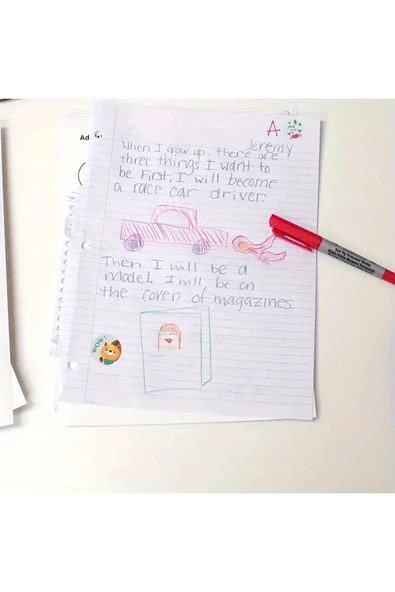 Ad
A
Jeremy
When I grow up, there are
three things I want to
be. First, I will become
a race car driver.
Then I will be a
model. I will be on
the cover of magazines.
WOW!